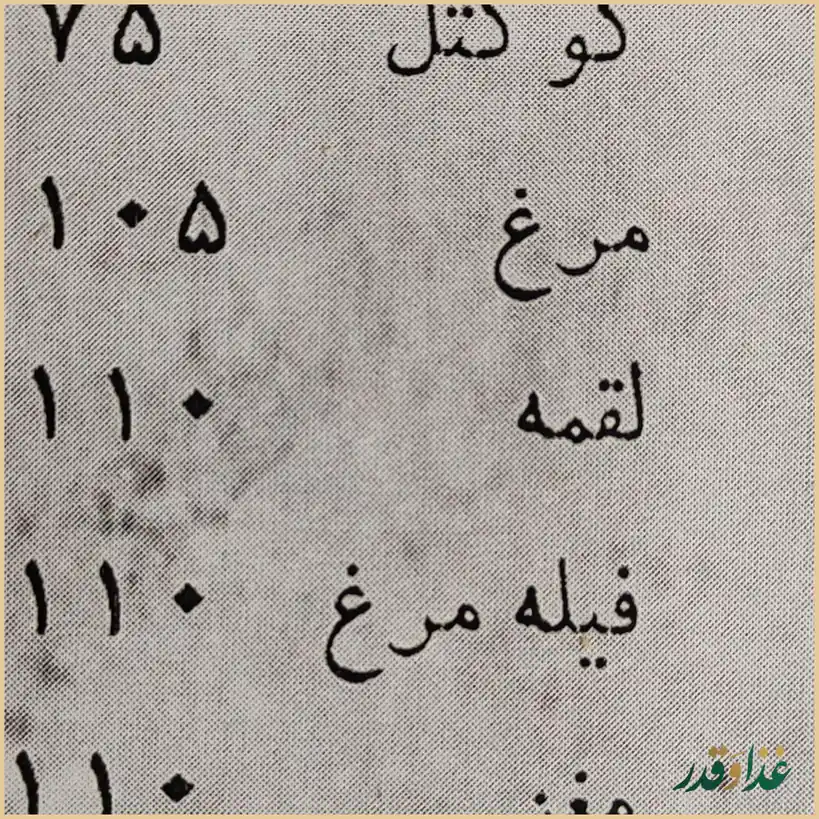 کو کتل ۷۵
مرغ ۱۰۵
لقمه ۱۱۰
فیله مرغ ۱۱۰
مغز ۱۱۰
غذا و قدر